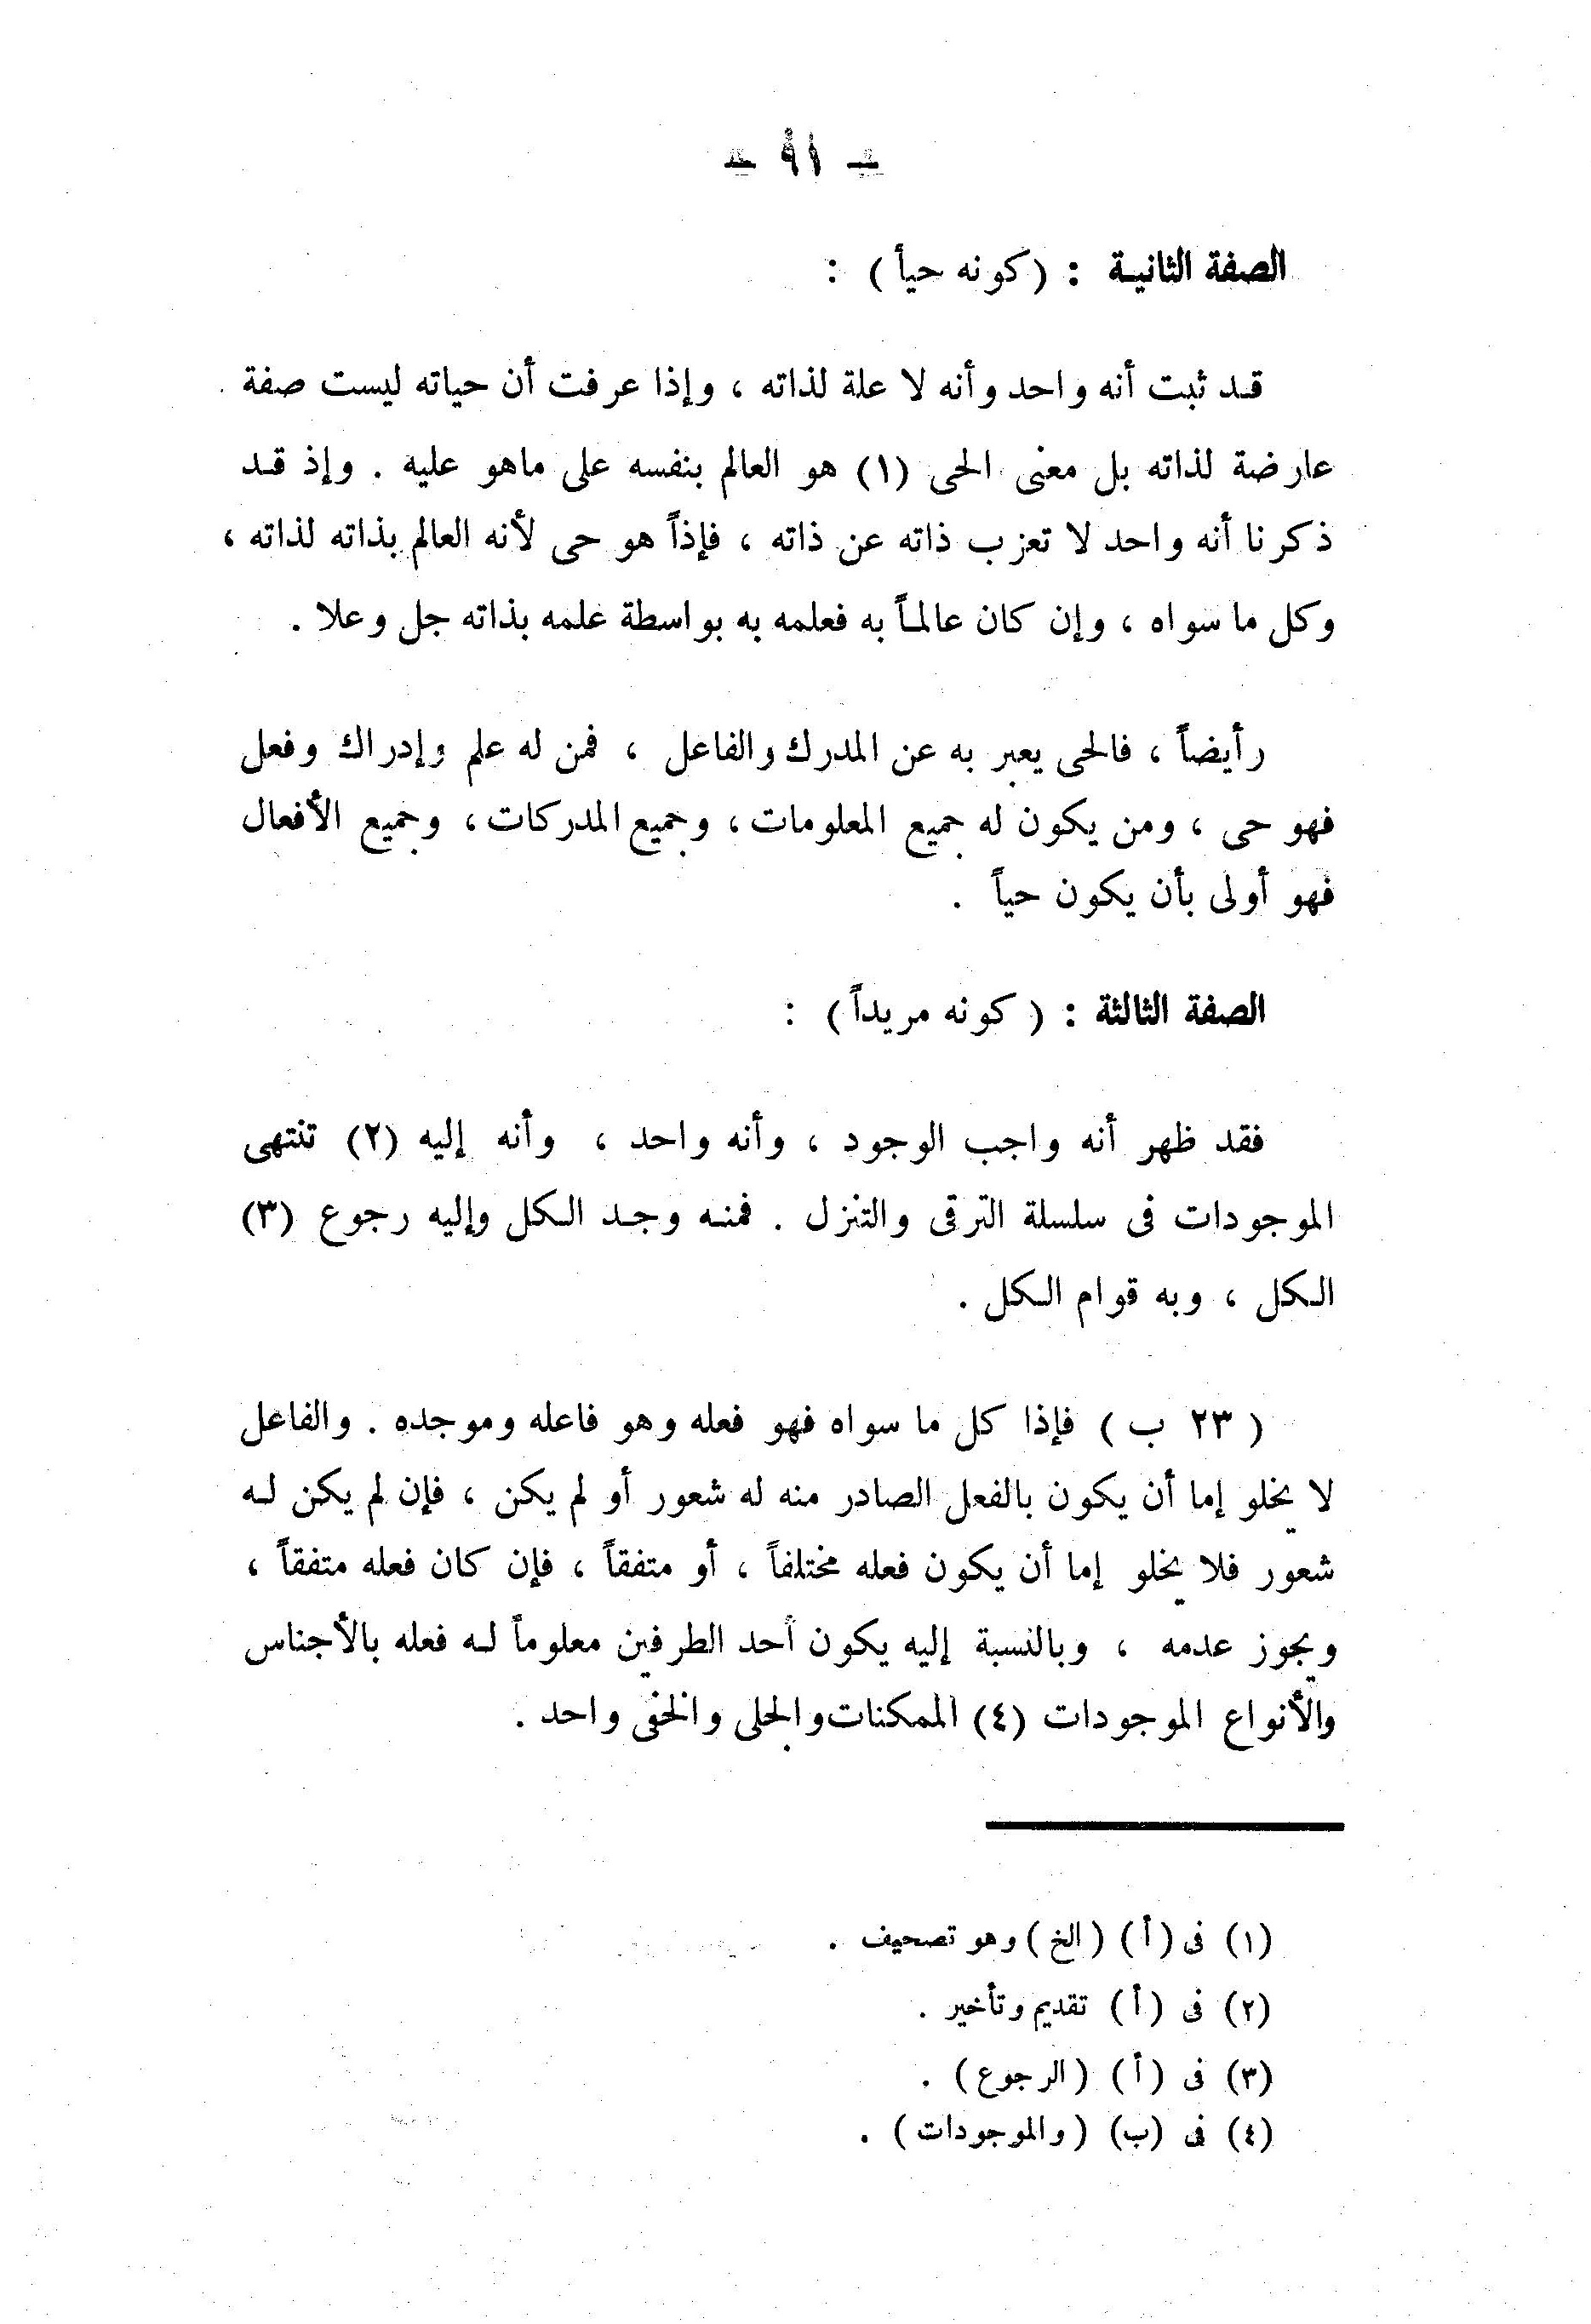 — ٩١ —
الصفة الثانية : ( كونه حيأ ) :
قد ثبت أنه واحد وأنه لا علة لذاته ، وإذا عرفت أن حياته ليست صفة
عارضة لذاته بل معنى الحى (١) هو العالم بنفسه على ماهو عليه . وإذ قد
ذكرنا أنه واحد لا تعزب ذاته عن ذاته ، فإذاً هو حى لأنه العالم بذاته لذاته ،
وكل ما سواه ، وإن كان عالماً به فعلمه به بواسطة علمه بذاته جل وعلا .
رأيضاً ، فالحى يعبر به عن المدرك والفاعل ، فمن له علم وإدراك وفعل
فهو حى ، ومن يكون له جميع المعلومات ، وجميع المدركات ، وجميع الأفعال
فهو أولى بأن يكون حياً .
الصفة الثالثة : ( كونه مريداً ) :
فقد ظهر أنه واجب الوجود ، وأنه واحد ، وأنه إليه (٢) تنتهى
الموجودات فى سلسلة الترقى والتنزل . فمنه وجد الكل وإليه رجوع (٣)
الكل ، وبه قوام الكل .
( ٢٣ ب ) فإذا كل ما سواه فهو فعله وهو فاعله وموجده . والفاعل
لا يخلو إما أن يكون بالفعل الصادر منه له شعور أو لم يكن ، فإن لم يكن له
شعور فلا يخلو إما أن يكون فعله مختلفاً ، أو متفقاً ، فإن كان فعله متفقاً ،
ويجوز عدمه ، وبالنسبة إليه يكون أحد الطرفين معلوماً له فعله بالأجناس
والأنواع الموجودات (٤) الممكنات والجلى والخفى واحد .
(١) فى (أ) (الخ) وهو تصحيف .
(٢) فى (أ) تقديم وتأخير .
(٣) فى (أ) (الرجوع) .
(٤) فى (ب) (والموجودات) .